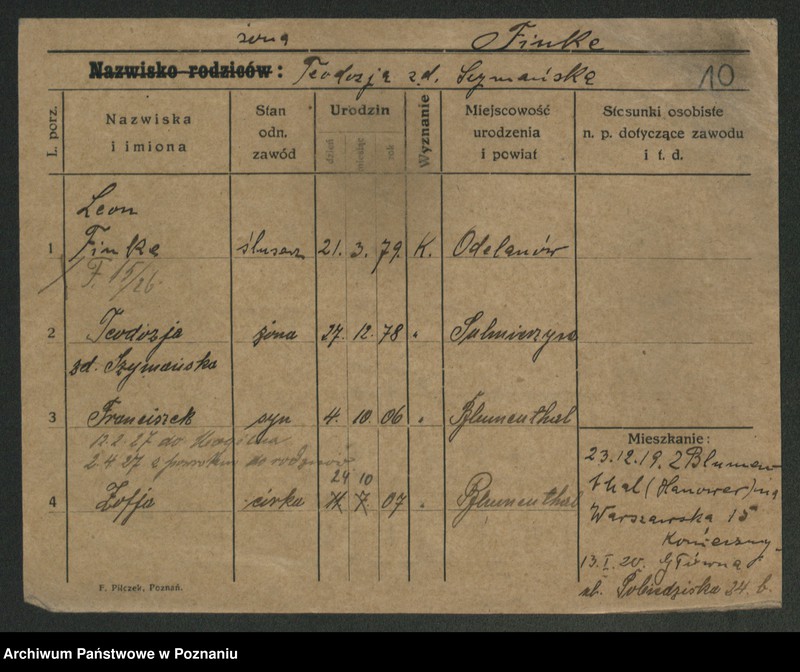 żona Finke
Nazwisko rodziców: Teodozja zd. Szymańska 10
L. porz.
Nazwiska i imiona
Stan odn. zawód
Urodzin
dzień
miesiąc
rok
Wyznanie
Miejscowość urodzenia i powiat
Stosunki osobiste n. p. dotyczące zawodu i t. d.
Leon
1 Finke ślusarz 21. 3. 79. K. Odolanów
F. 15/26
2 Teodozja żona 27. 12. 78 " Sulmierzyce
zd. Szymańska
3 Franciszek syn 4. 10. 06 " Blumenthal
12.2.27 do Mogilna
2.4.27 z powrotem do rodziców
24 10
4 Zofja córka 4 7 07 " Blumenthal
Mieszkanie:
23.12.19. z Blumen
thal (Hanower) na
Warszawska 15
13.I.20. Główna
ul. Pobiedziska 24. b.
F. Pilczek, Poznań.
Archiwum Państwowe w Poznaniu